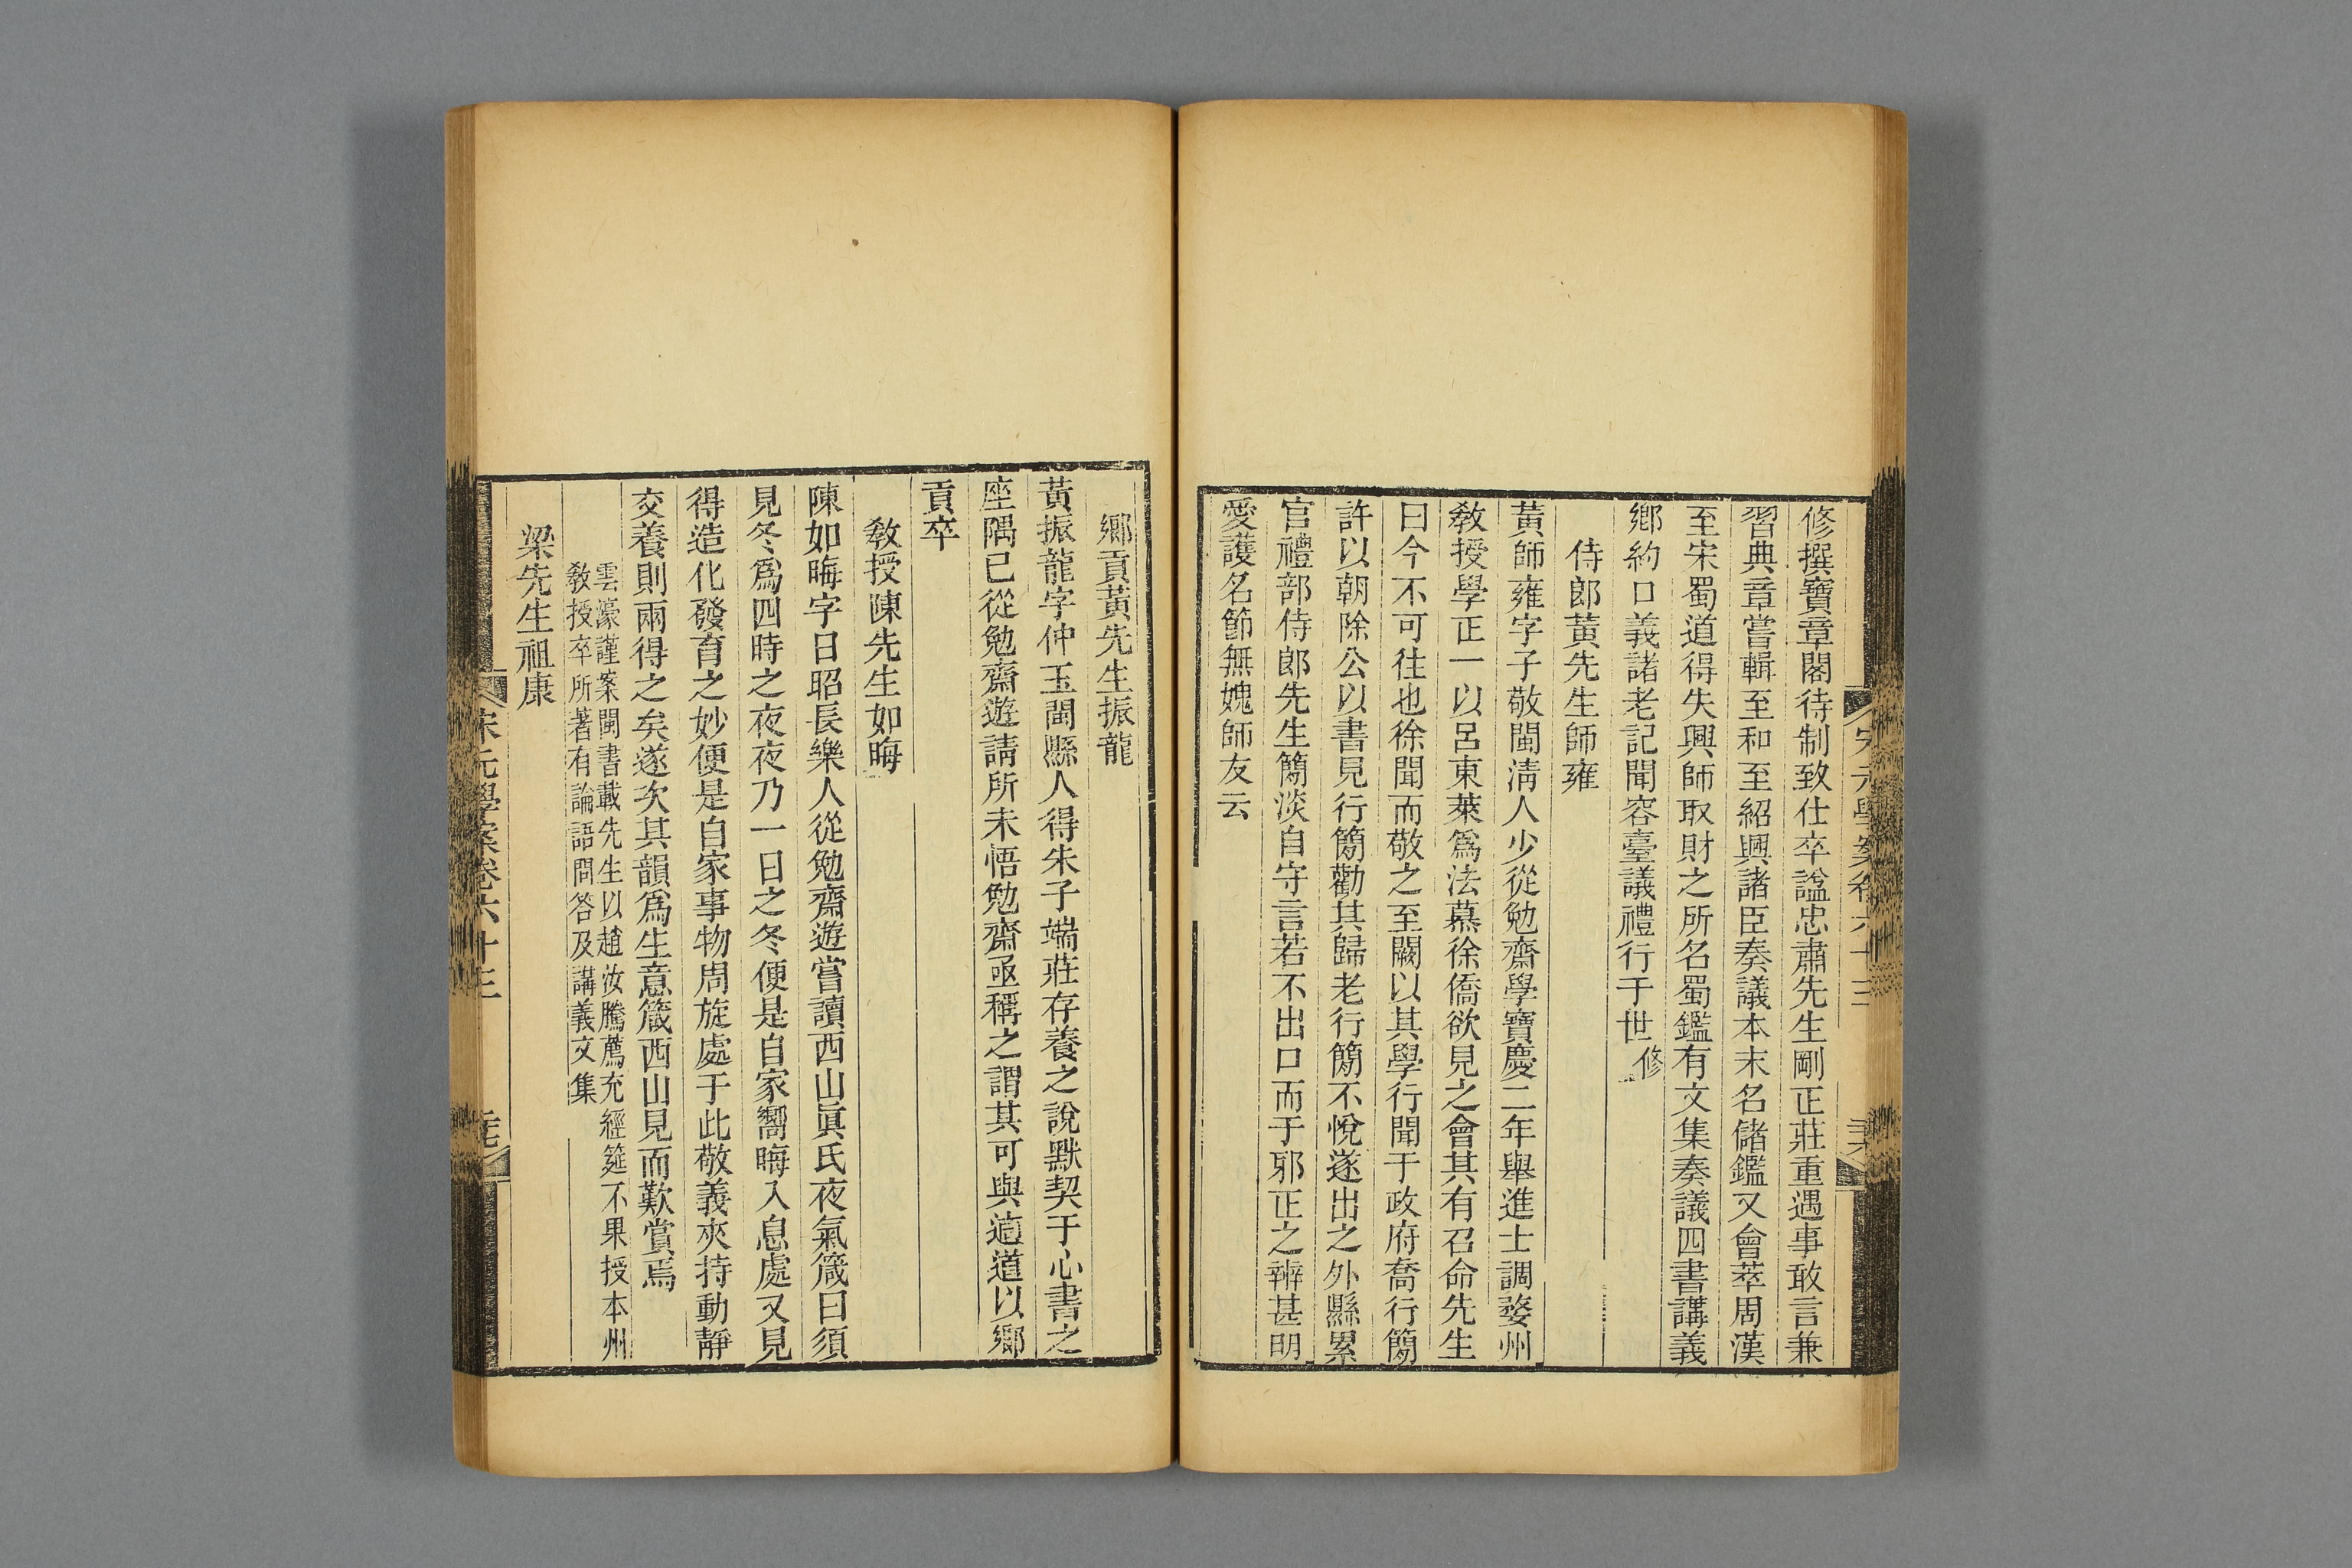 修撰寶章閣待制致仕卒諡忠肅先生剛正莊重遇事敢言兼
習典章嘗輯至和至紹興諸臣奏議本末名儲鑑又會萃周漢
至宋蜀道得失興師取財之所名蜀鑑有文集奏議四書講義
鄉約口義諸老記聞容臺議禮行于世修
侍郎黃先生師雍
黃師雍字子敬閩淸人少從勉齋學寶慶二年舉進士調婺州
敎授學正一以呂東萊爲法慕徐僑欲見之會其有召命先生
曰今不可往也徐聞而敬之至闕以其學行聞于政府喬行簡
許以朝除公以書見行簡勸其歸老行簡不悅遂出之外縣累
官禮部侍郎先生簡淡自守言若不出口而于邪正之辨甚明
愛護名節無媿師友云
鄉貢黃先生振龍
黃振龍字仲玉閩縣人得朱子端莊存養之說默契于心書之
座隅已從勉齋遊請所未悟勉齋亟稱之謂其可與適道以鄉
貢卒
敎授陳先生如晦
陳如晦字日昭長樂人從勉齋遊嘗讀西山眞氏夜氣箴曰須
見冬爲四時之夜夜乃一日之冬便是自家嚮晦入息處又見
得造化發育之妙便是自家事物周旋處于此敬義夾持動靜
交養則兩得之矣遂次其韻爲生意箴西山見而歎賞焉
雲濠謹案閩書載先生以趙汝騰薦充經筵不果授本州
敎授卒所著有論語問答及講義文集
梁先生祖康
宋元學案卷六十三